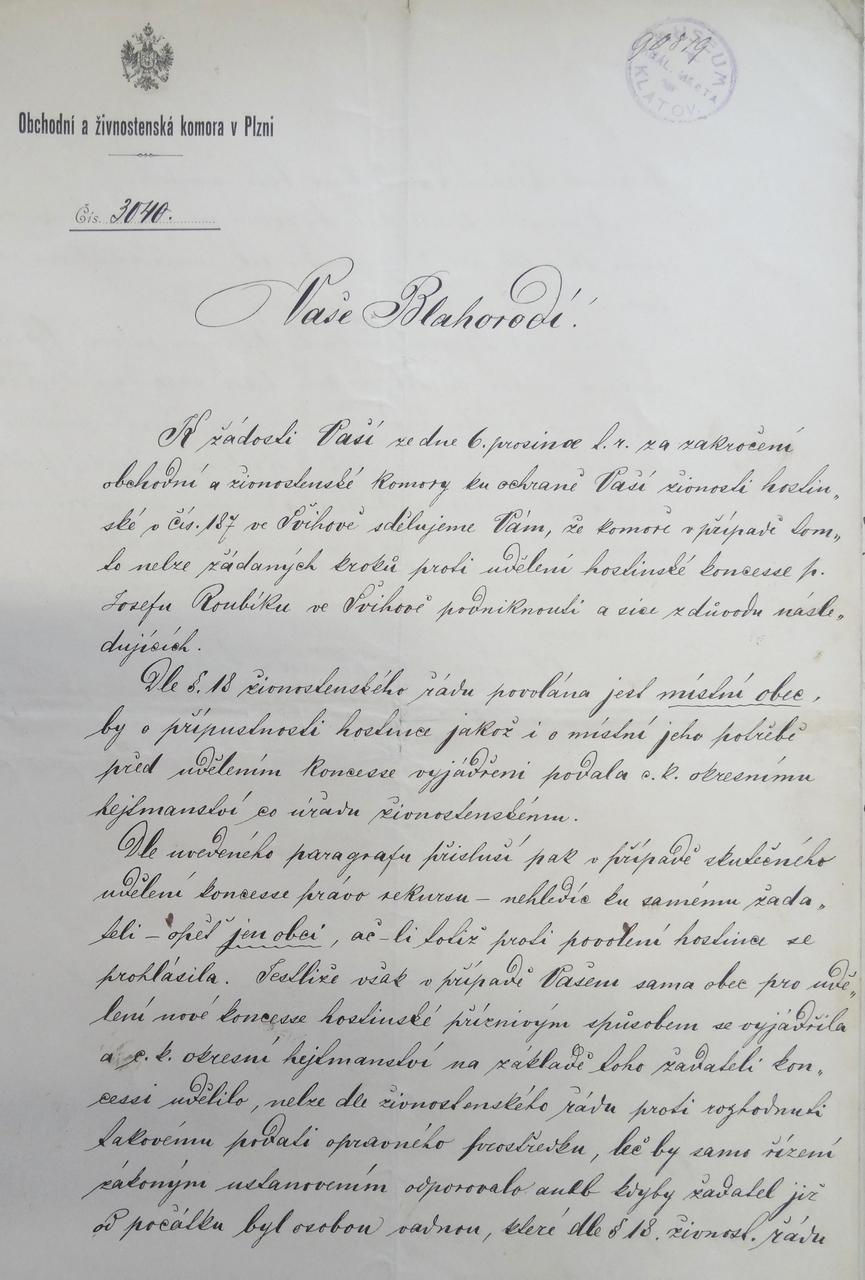 90879
MUSEUM
KRÁL. MĚSTA
KLATOV.
Obchodní a živnostenská komora v Plzni
Čís. 3040.
Vaše Blahorodí!
K žádosti Vaší ze dne 6. prosince t. r. za zakročení
obchodní a živnostenské komory ku ochraně Vaší živnosti hostin„
ské v čís. 187 ve Švihově sdělujeme Vám, že komoře v případě tom„
to nelze žádaných kroků proti udělení hostinské koncesse p.
Josefu Roubíku ve Švihově podniknouti a sice z důvodu násle„
dujících.
Dle §. 18 živnostenského řádu povolána jest místní obec,
by o přípustnosti hostince jakož i o místní jeho potřebě
před udělením koncesse vyjádření podala c. k. okresnímu
hejtmanství co úřadu živnostenskému.
Dle uvedeného paragrafu přísluší pak v případě skutečného
udělení koncesse právo rekursu – nehledíc ku samému žada„
teli – opět jen obci, ač-li totiž proti povolení hostince se
prohlásila. Jestliže však v případě Vašem sama obec pro udě„
lení nové koncesse hostinské příznivým spůsobem se vyjádřila
a c. k. okresní hejtmanství na základě toho žadateli kon„
cessi udělilo, nelze dle živnostenského řádu proti rozhodnutí
takovému podati opravného prostředku, leč by samo řízení
zákonným ustanovením odporovalo aneb kdyby žadatel již
od počátku byl osobou vadnou, které dle § 18. živnost. řádu